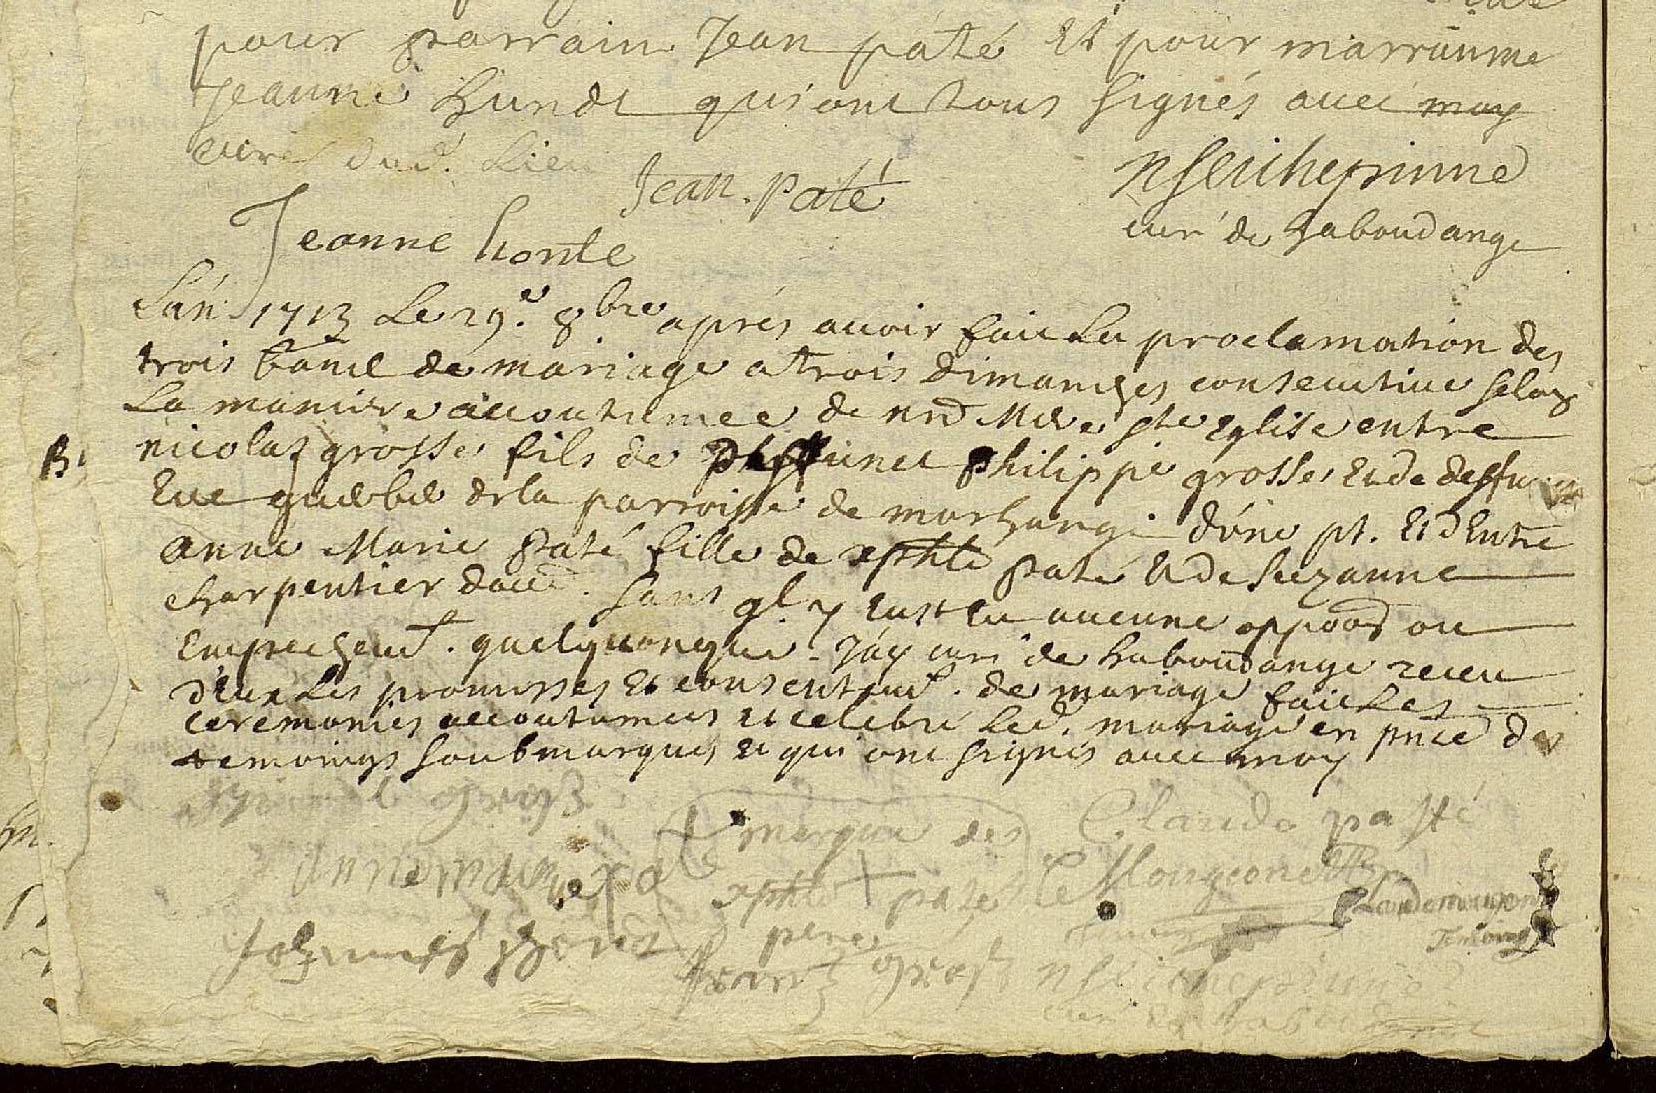 pour parrain Jean paté Et pour marrainne
Jeanne hundt qui ont tous signés avec moy
curé dud. Lieu
Jean. paté
NSeichepinne
curé de haboudange
Jeanne honte
L'an 1713 Le 29.e 8bre aprés avoir fait La proclamation des
trois banc de mariage a trois dimanches consecutive selon
La maniere accoutumee de nrd Mere ste Eglise entre
nicolas grosse fils de philippe grosse Et de deffuncte
Eve de la parroisse de marhange d'une pt. Et D'Entre
anne Marie paté fille de xphle paté Et de suzanne
charpentier d'autre. sans ql y eust Eu aucune opposõn ou
Empechemt. quelquonque. J'ay curé de haboudange receu
d'Eux Les promesses Et consentemt. de mariage fait Les
ceremonies accoutumees et celebré Led. mariage en pnce de
temoings soubmarqués et qui ont signés avec moy
gross
marque des
Claude pasté
anne marie pate
xphle + pate
C Mongeonet
Claude mongeon
Temoing
Johannes
pere
frantz gross
NSeichepinne
curé de haboudange